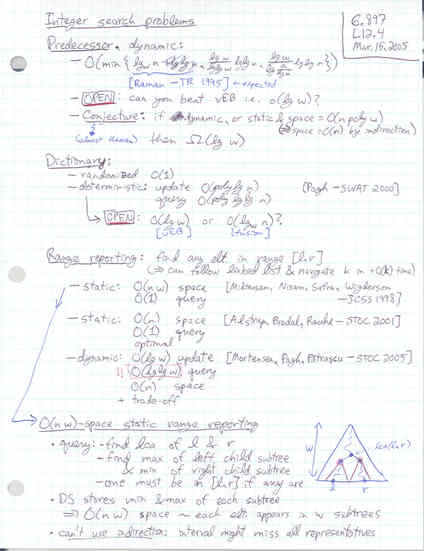 Integer search problems
6.897
L12.4
Mar. 16, 2005
Predecessor, dynamic:
- O(min {
[Raman - TR 1995] ← expected
- OPEN: can you beat vEB i.e. o(lg w)?
- Conjecture: if dynamic, or static & space = O(n poly w)
(space = O(n) by indirection)
(almost theorem) then Ω(lg w)
Dictionary:
- randomized O(1)
- deterministic: update O(poly lg n) [Pagh - SWAT 2000]
query O(poly lg lg n)
→ OPEN: O(lg w) or O(lg_w n)?
[vEB] [fusion]
Range reporting: find any elt. in range [l,r]
(⇒ can follow linked list & navigate k in +O(k) time)
- static: O(n w) space [Miltersen, Nisan, Safra, Wigderson
O(1) query - JCSS 1998]
- static: O(n) space [Alstrup, Brodal, Rauhe - STOC 2001]
O(1) query
optimal
- dynamic: O(lg w) update [Mortensen, Pagh, Patrascu - STOC 2005]
O(lg lg w) query
O(n) space
+ trade-off
O(n w)-space static range reporting
• query: - find lca of l & r
- find max of left child subtree
& min of right child subtree
- one must be in [l,r] if any are
w
lca(l,r)
l
r
• DS stores min & max of each subtree
⇒ O(n w) space ~ each elt. appears in w subtrees
• can't use indirection: interval might miss all representatives